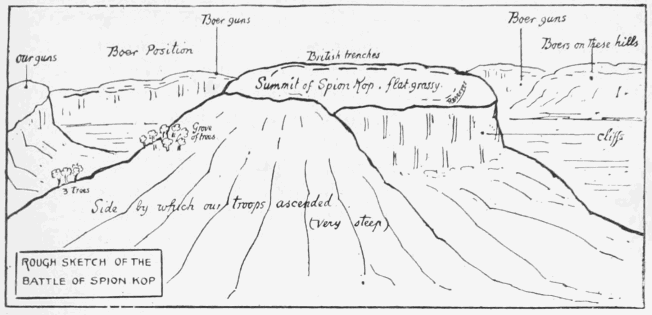 Boer guns
Boer guns
our guns
Boer Position
British trenches
Boers on these hills
Summit of Spion Kop, flat grassy.
Grove of trees
cliffs
3 Trees
Side by which our troops ascended
(very steep)
ROUGH SKETCH OF THE
BATTLE OF SPION KOP